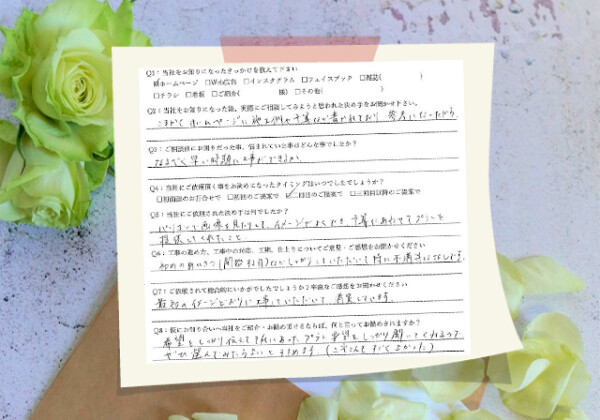 Q1：当社をお知りになったきっかけを教えて下さい
☑ホームページ □Web広告 □インスタグラム □フェイスブック □雑誌( )
□チラシ □看板 □ご紹介( 様) □その他( )
Q2：当社をお知りになった後、実際にご相談してみようと思われた決め手をお聞かせ下さい。
こまかく ホームページに施工例や予算などが書かれており 参考になったから。
Q3：ご相談前にお困りだった事、悩まれていた事はどんな事でしたか？
なるべく早い時期に工事ができるか。
Q4：当社にご依頼頂く事をお決めになったタイミングはいつでしたでしょうか？
□初面談のお打合せで □初回のご提案で ☑二回目のご提案で □三回目以降のご提案で
Q5：当社にご依頼された決め手は何でしたか？
パソコンで画像を見たりして、イメージがよくでき、予算にあわせてプランを
提供してくれたこと
Q6：工事の進め方、工事中の対応、工期、仕上りについてご意見・ご感想をお聞かせください
(開始
特に不満はないです。
Q7：ご依頼されて総合的にいかがでしたでしょうか？率直なご感想をお聞かせください
最初のイメージどおりに工事していただいて、満足しています。
Q8：仮にお知り合いへ当社をご紹介・お勧め頂けるならば、何と言ってお勧めされますか？
希望をしっかり伝えて 予算にあった プラン 要望をしっかり 聞いてくれるので
ぜひ 選んでみたらよいと すすめます。